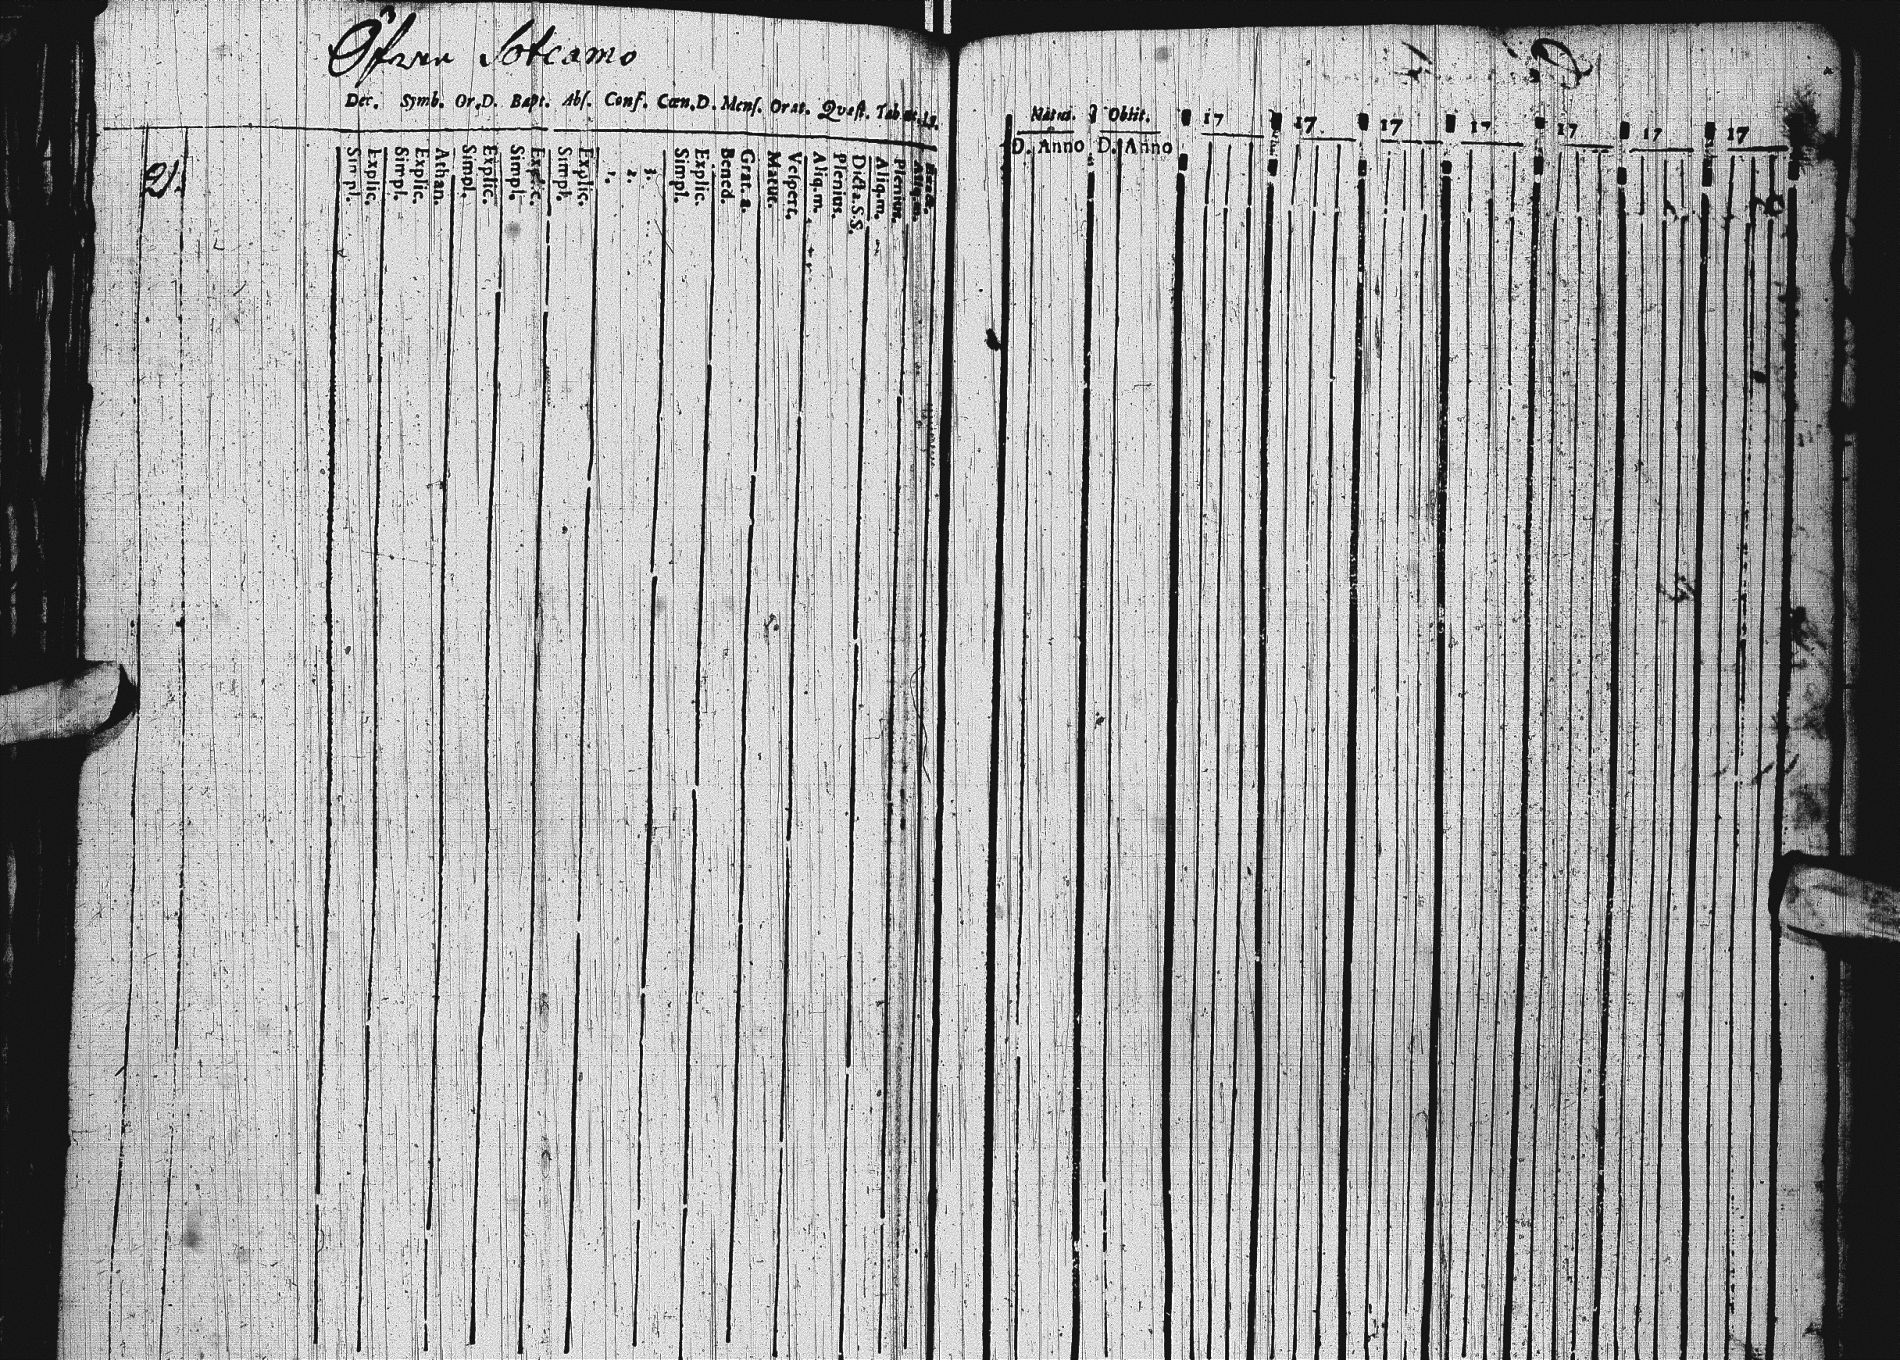 Öfwer Sotcamo
Dec. Symb. Or.D. Bapt. Abſ. Conf. Cœn.D. Menſ. Orat. Quæſt. Tab.
21.
Simpl.
Explic.
Simpl.
Explic.
Athan.
Simpl.
Explic.
Simpl.
Explic.
Simpl.
Explic.
1.
2.
3.
Simpl.
Explic.
Bened.
Grat. a.
Matut.
Veſpert.
Aliq.m.
Plenius.
Dicta.S.S.
Aliq.m.
Plenius.
Natus. Obiit. 17 17 17 17 17 17 17
D. Anno D. Anno